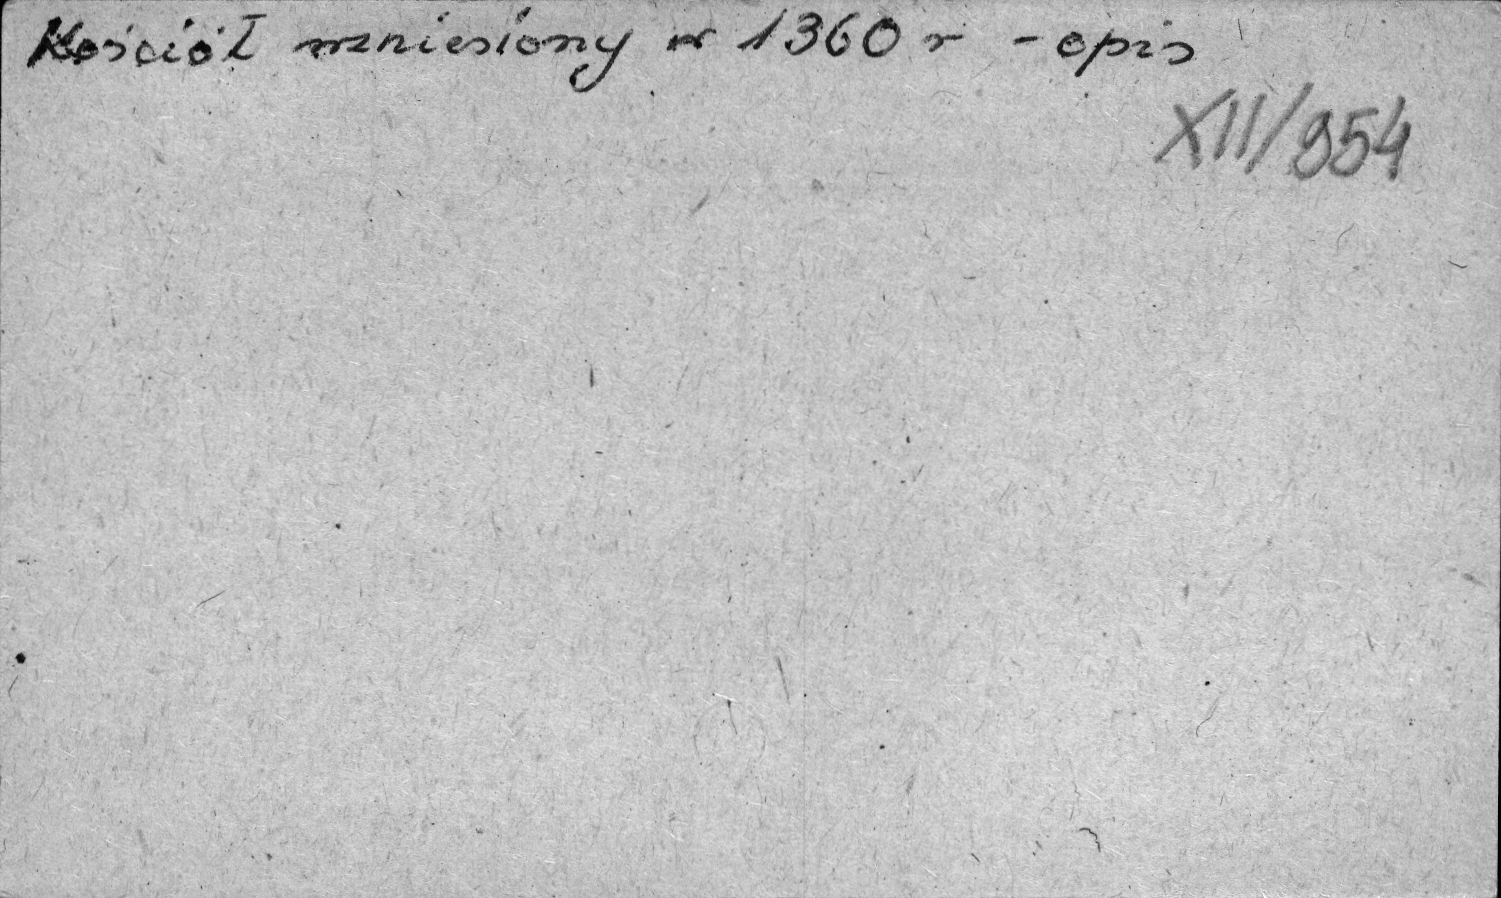 Kościół wzniesiony w 1360 r - opis
XII/954